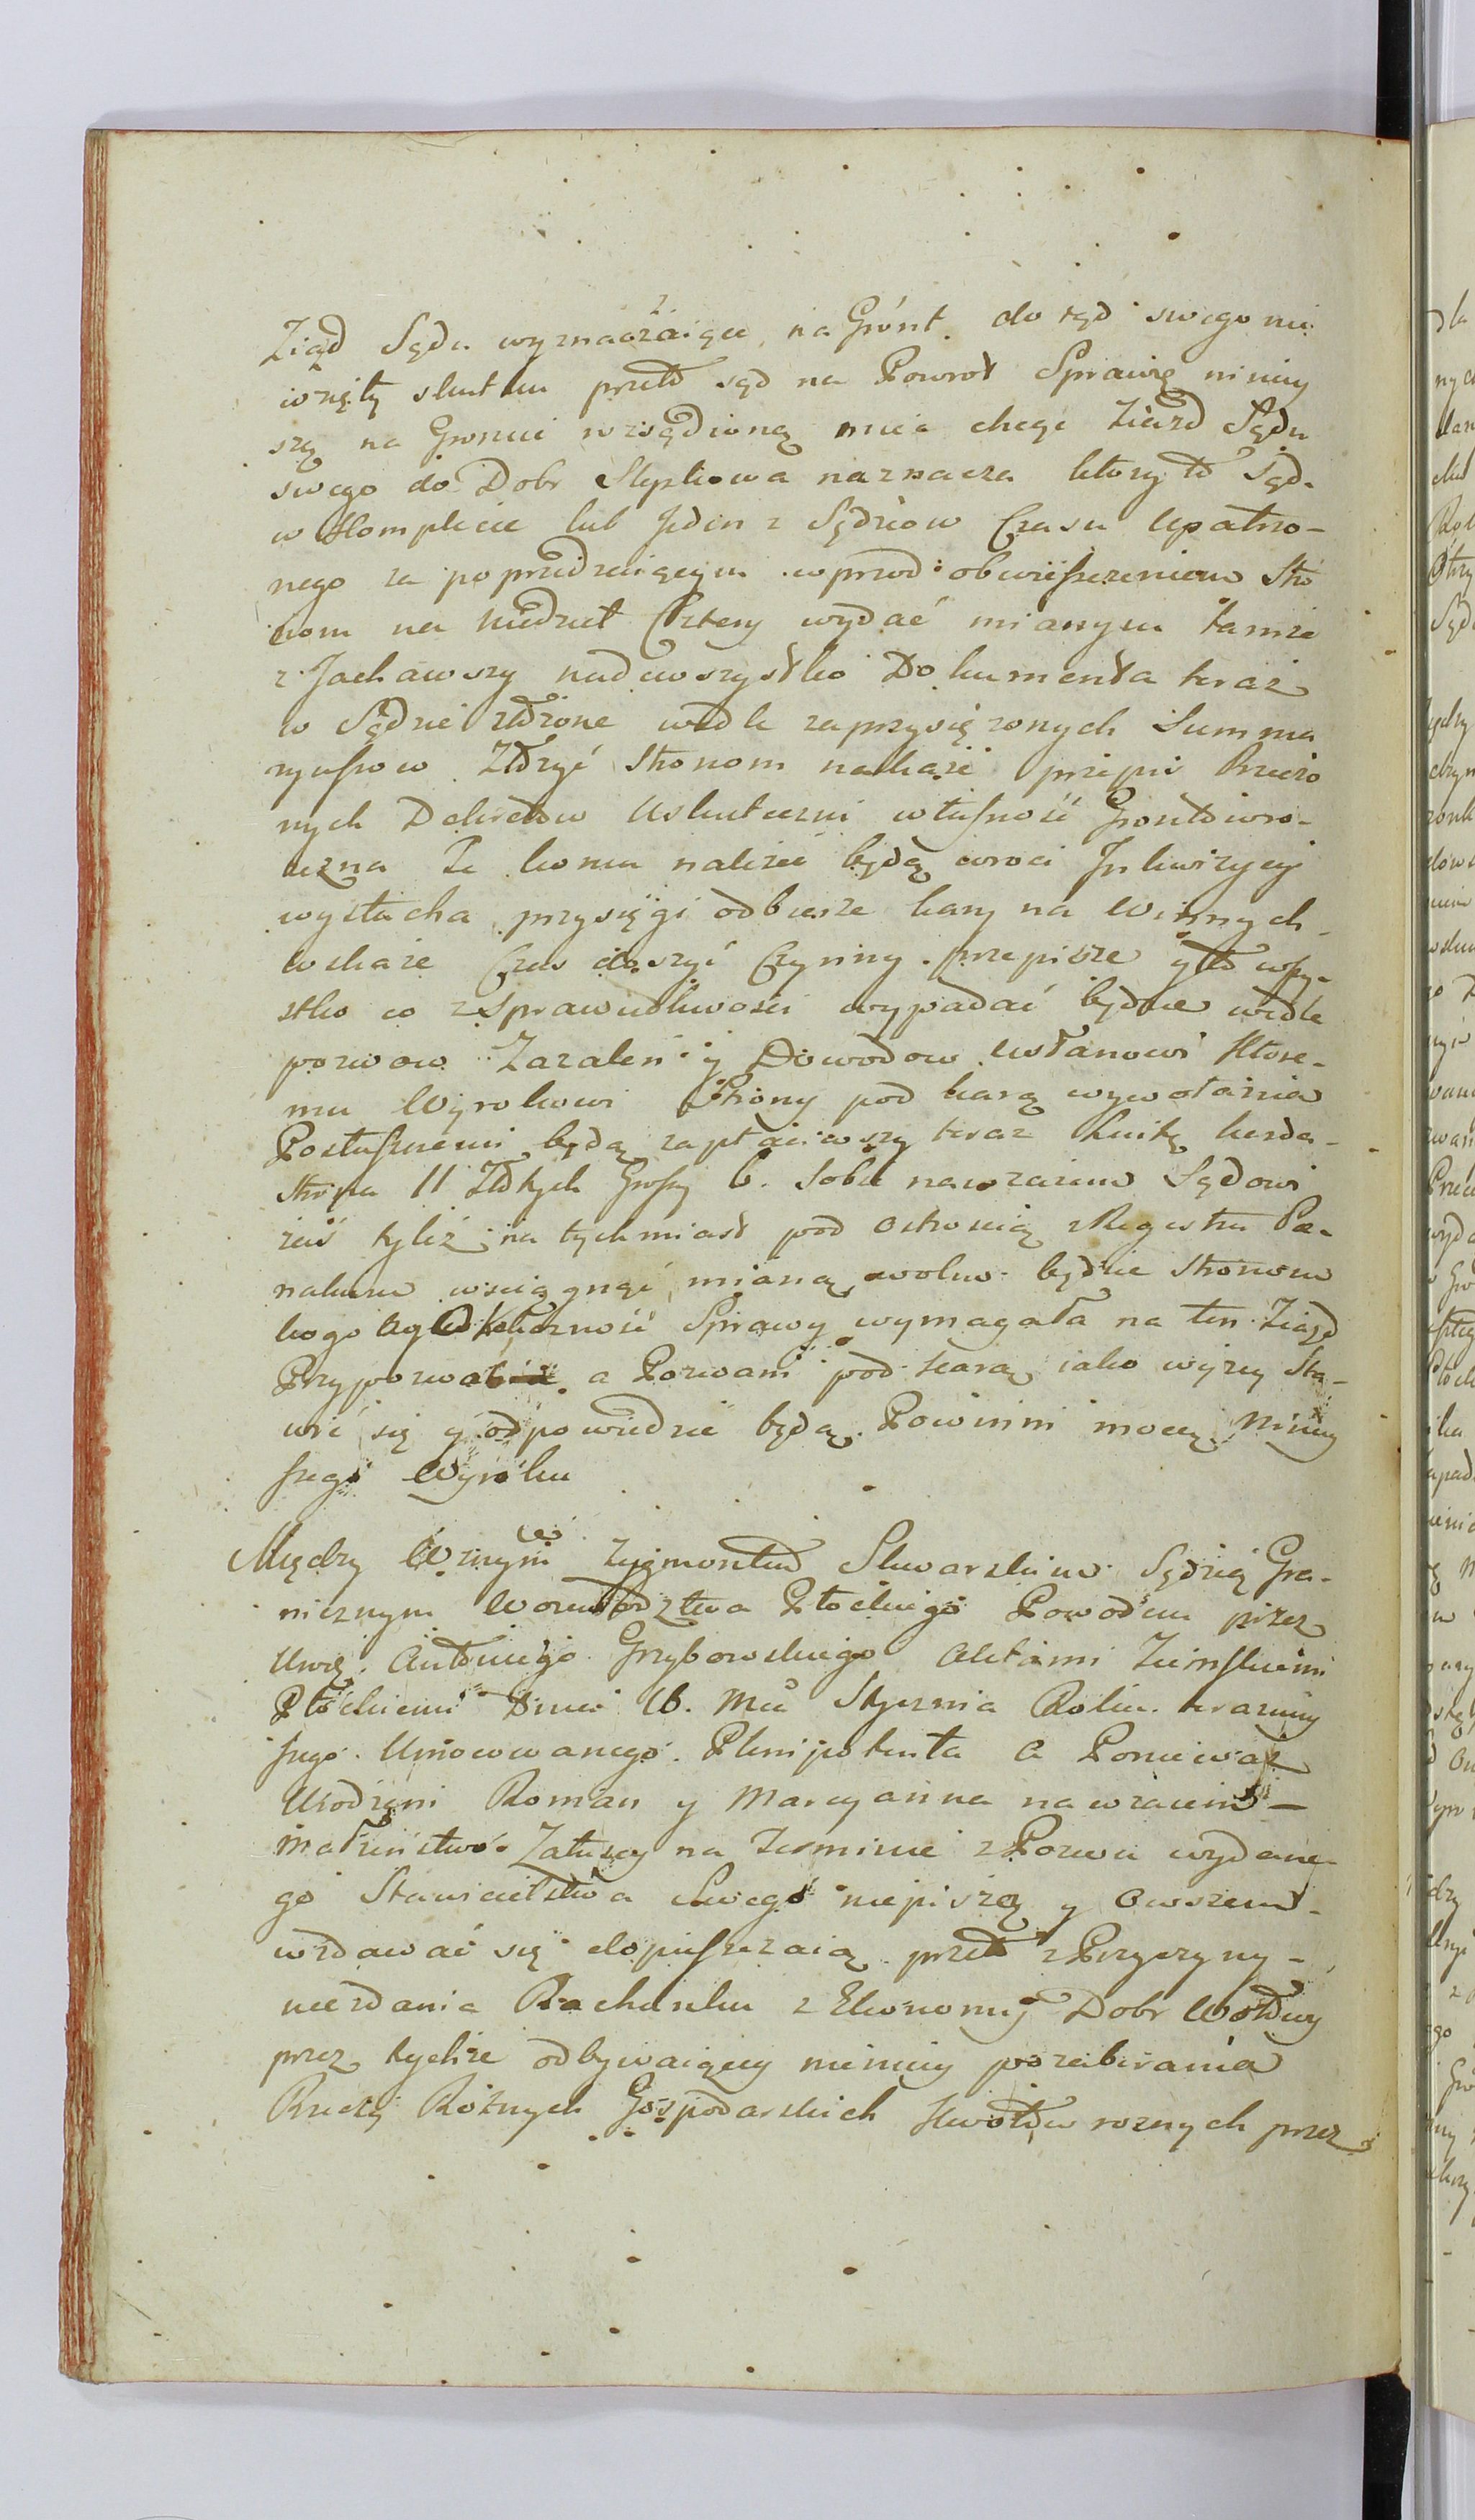 Ziazd Sądu wyznaczaiące na Grónt do tąd swego nie
wzięły skutku przeto sąd na Powrot Sprawę niniey
szą na Groncie rozsądzoną miec chcąc Ziazd Sądu
swego do Dobr Słupkowa naznacza ktory to Sąd
w Komplecie lub Jeden z Sędziow Czasu upatrzo-
nego za poprzedzaiącym wprzod obwieszczeniem Stro
nom na Niedziel Cztery wydać mianym tamże
z Jachawszy nadewszystko Dokumenta teraz
w Sądzie złożone wedle zaprzysiężonych Summa
ryuszow Złożyć Stronom nakaże przepis Rzeczo
nych Dekretow uskuteczni własność Grontow ro-
uczna Te komu należeć będą wroci Inkwizycyi
wysłucha przysięgi odbierze kary na Winnych
wskaże Czas doszyć Czynny przepisze y to wszy-
stko co z sprawiedliwości wypadać będzie wedle
pozwow Zazaleń y Dowodow ustanowi Ktore-
mu Wyrokowi Strony pod karą wywołania
Posłusznemi będą zapłaciwszy teraz każda
Strona 11 Złotych Groszy 6. Sobie nawzaiem Sądowi
zaś tyleż na tychmiast pod Ostrością z Regestru Pœ-
nalium wsciągnąć mianą wolno będzie Stronom
kogo by Okoliczność Sprawy wymagała na ten Ziazd
Przypozwać a Pozwani pod karą iako wyzey Sta-
wić się y odpowiedzieć będą Powinni mocą Niniey
szego Wyroku
Między Urznym Zygmontem Skwarskim Sędzią Gra-
nicznym Woiewodztwa Płockiego Powodem przez
Urgo Antoniego Grzybowskiego Aktami Ziemskiemi
Płockiemi Dnia 16. Mca Stycznia Roku teraźniey
szego Umocowanego Plenipotenta a Poniewaz
Urodzeni Roman y Maryanna nawzaiem
Małżeństwo Załuscy na Terminie z Pozwu wydane-
go Stawicielstwa Swego niepiszą y Owszem
wzdawać się dopuszczaią przeto z Przyczyny
niezdania Rachunku z Ekonomij Dobr
przez tychże odbywaiącey niemniey pozabierania
Rzeczy Rożnych Gospodarskich Kwotow roznych przez